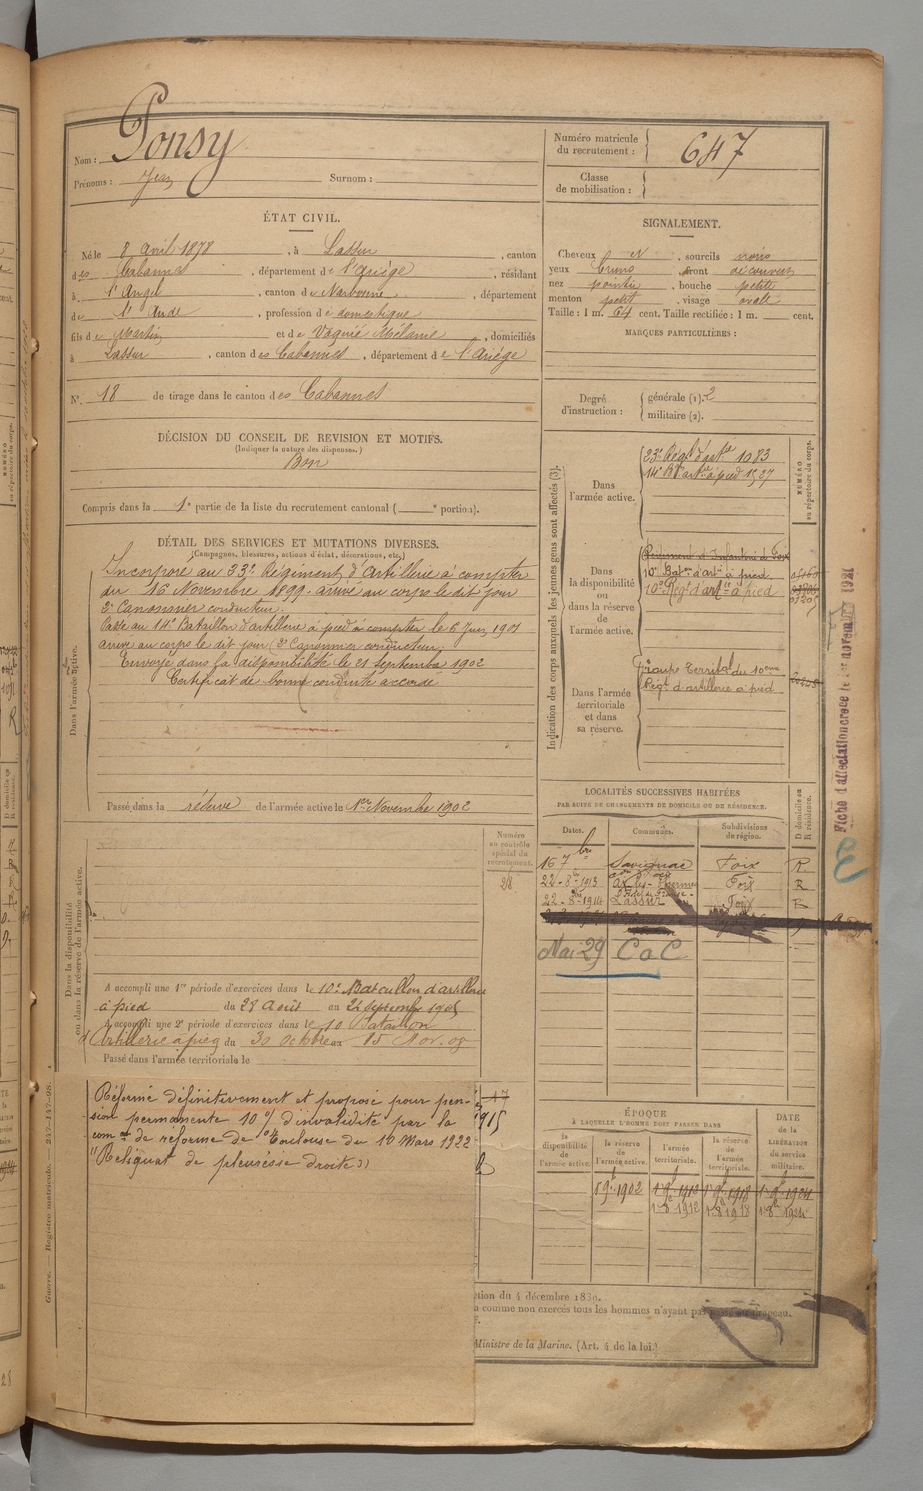 Nom : Ponsy
Prénoms : Jean Surnom :
Numéro matricule du recrutement : 647
Classe de mobilisation :
ÉTAT CIVIL.
Né le 8 avril 1878, à Lassur, canton
des Cabannes, département de l'Ariège, résidant
à, canton de Narbonne, département
de l'Aude, profession de domestique
fils de Martin et de Vaquié Mélanie, domiciliés
à Lassur, canton des Cabannes, département de l'Ariège
N° 18 de tirage dans le canton des Cabannes
SIGNALEMENT.
Cheveux N, sourcils noirs
yeux bruns, front découvert
nez pointu, bouche petite
menton petit, visage ovale
Taille : 1 m. 64 cent. Taille rectifiée : 1 m. cent.
MARQUES PARTICULIÈRES :
Degré d'instruction : générale (1). 2
militaire (2).
DÉCISION DU CONSEIL DE REVISION ET MOTIFS.
(Indiquer la nature des dispenses.)
Bon
Compris dans la 1e partie de la liste du recrutement cantonal ( e portion).
DÉTAIL DES SERVICES ET MUTATIONS DIVERSES.
(Campagnes, blessures, actions d'éclat, décorations, etc.)
Dans l'armée active.
Incorporé au 23e Régiment d'Artillerie à compter
du 16 Novembre 1899. arrivé au corps le dit jour
2e Canonnier conducteur.
Passé au 14e Bataillon d'artillerie à pied à compter le 6 Juin 1901
arrivé au corps le dit jour 2e Canonnier conducteur.
Envoyé dans la disponibilité le 21 septembre 1902
Certificat de bonne conduite accordé
Passé dans la réserve de l'armée active le 1er Novembre 1902
Indication des corps auxquels les jeunes gens sont affectés (3).
NUMÉRO au répertoire du corps.
Dans l'armée active.
23e Régt d'artie 1083
14e Bon artie à pied 1527
Dans la disponibilité ou dans la réserve de l'armée active.
Régiment d'Infanterie de Foix
10e Baton d'artie à pied
10e Régt d'artie à pied
Dans l'armée territoriale et dans sa réserve.
Groupe Territal du 10eme
Régt d'artillerie à pied
Fiche d'affectation créée le 1er novembre 1921
LOCALITÉS SUCCESSIVES HABITÉES
PAR SUITE DE CHANGEMENTS DE DOMICILE OU DE RÉSIDENCE.
Dates. Communes. Subdivisions de région. D domicile ou R résidence.
Savignac Foix R.
22-8-1913 Ax-les-Thermes Foix R
22-8-1914 Lassur Foix R
Mai 29 CaC
Dans la disponibilité ou dans la réserve de l'armée active.
Numéro au contrôle spécial du recrutement.
28
A accompli une 1re période d'exercices dans le 10e Bataillon d'artillerie
à pied du 28 Août au 24 septembre 1905
A accompli une 2e période d'exercices dans le 10 Bataillon
d'Artillerie à pied du 30 octobre au 15 Nov. 08
Passé dans l'armée territoriale le
Réformé définitivement et proposé pour pen-
sion permanente 10% d'invalidité par la
comon de réforme de Toulouse du 16 Mars 1922
"Reliquat de pleurésie droite"
1915
ÉPOQUE
À LAQUELLE L'HOMME DOIT PASSER DANS
la disponibilité de l'armée active. la réserve de l'armée active. l'armée territoriale. la réserve de l'armée territoriale. DATE de la LIBÉRATION du service militaire.
1 9e 1902 1 9e 1912 1 9e 1918 1 9e 1924
1-8-1912 1-8-1918 1-8-1924
ction du 4 décembre 1889.
a comme non exercés tous les hommes n'ayant pas passé au drapeau.
Ministre de la Marine. (Art. 4 de la loi.)
Guerre. — Registre matricule. — 247-147-98.